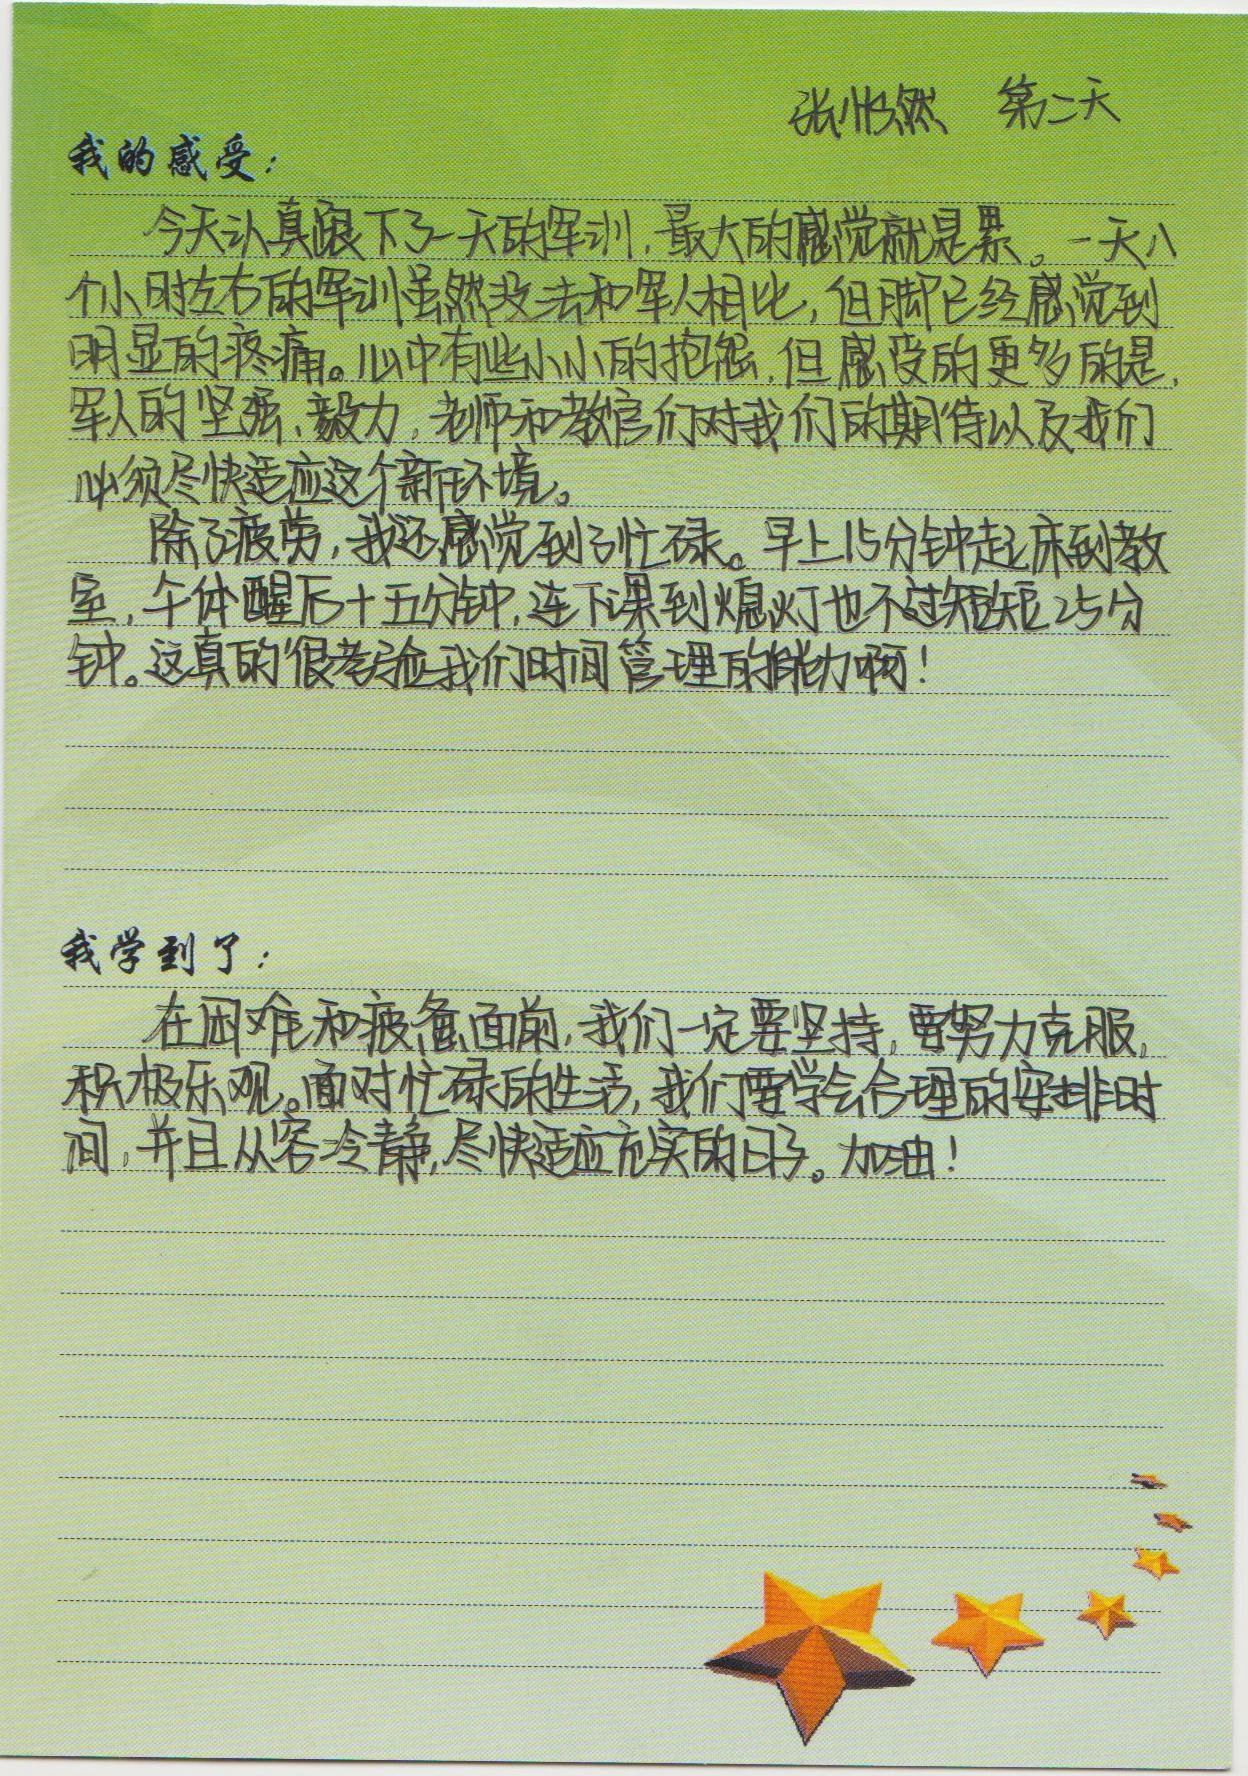 张悠然 第二天
我的感受：
今天认真跟下了一天的军训，最大的感觉就是累。一天八
个小时左右的军训虽然没法和军人相比，但脚已经感觉到
明显的疼痛。心中有些小小的抱怨，但感受的更多的是，
军人的坚强、毅力，老师和教官们对我们的期待以及我们
必须尽快适应这个新环境。
除了疲劳，我还感觉到了忙碌。早上15分钟起床到教
室，午休醒后十五分钟，连下课到熄灯也不过短短25分
钟。这真的很考验我们时间管理的能力啊！
我学到了：
在困难和疲惫面前，我们一定要坚持，要努力克服，
积极乐观。面对忙碌的生活，我们要学会合理的安排时
间，并且从容冷静，尽快适应充实的日子。加油！